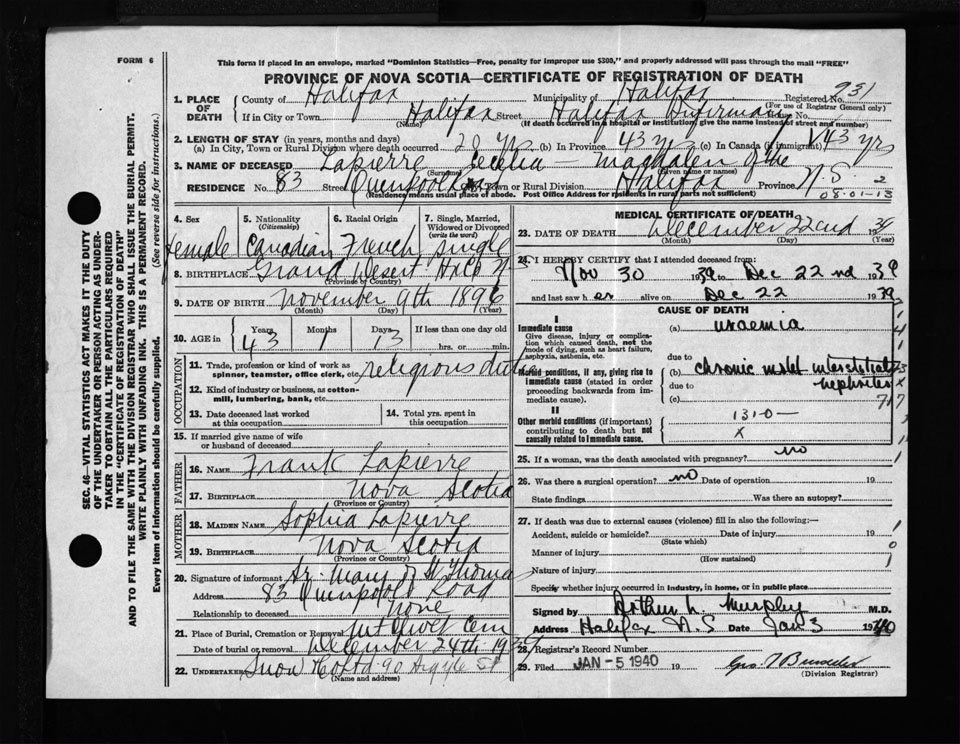 FORM 6
This form if placed in an envelope, marked "Dominion Statistics—Free, penalty for improper use $300," and properly addressed will pass through the mail "FREE"
PROVINCE OF NOVA SCOTIA—CERTIFICATE OF REGISTRATION OF DEATH
1. PLACE OF DEATH
County of Halifax Municipality of Halifax Registered No. 931
(For use of Registrar General only)
If in City or Town Halifax Street Halifax Infirmary
(Name) (If death occurred in a hospital or institution, give the name instead of street and number)
2. LENGTH OF STAY (in years, months and days)
(a) In City, Town or Rural Division where death occurred 20 yrs (b) In Province 43 yrs (c) In Canada (if immigrant) 43 yrs
3. NAME OF DECEASED Lapierre Cecelia — Magdalen of the
(Surname) (Given name or names)
RESIDENCE No. 83 Street Quinpool Rd City, Town or Rural Division Halifax Province N.S. 2
(Residence means usual place of abode. Post Office Address for residents in rural parts not sufficient)
08-01-13
4. Sex
female
5. Nationality
(Citizenship)
Canadian
6. Racial Origin
French
7. Single, Married, Widowed or Divorced
(write the word)
single
8. BIRTHPLACE Grand Desert Halco N.S
9. DATE OF BIRTH November 9th 1896
(Month) (Day) (Year)
10. AGE in
Years 43
Months 1
Days 13
If less than one day old
hrs. or min.
OCCUPATION
11. Trade, profession or kind of work as spinner, teamster, office clerk, etc. religious duties
12. Kind of industry or business, as cotton-mill, lumbering, bank, etc.
13. Date deceased last worked at this occupation
14. Total yrs. spent in this occupation
15. If married give name of wife or husband of deceased
FATHER
16. NAME Frank Lapierre
17. BIRTHPLACE Nova Scotia
(Province or Country)
MOTHER
18. MAIDEN NAME Sophia Lapierre
19. BIRTHPLACE Nova Scotia
(Province or Country)
20. Signature of informant Sr. Mary of St Thomas
Address 83 Quinpool Road
Relationship to deceased none
21. Place of Burial, Cremation or Removal Mt Olivet Cem
Date of burial or removal December 24th 1939
22. UNDERTAKER Snow & Co Ltd 90 Argyle St
(Name and address)
MEDICAL CERTIFICATE OF DEATH
23. DATE OF DEATH December 22nd 39
(Month) (Day) (Year)
24. I HEREBY CERTIFY that I attended deceased from:
Nov 30 1939 to Dec 22nd 1939
and last saw her alive on Dec 22 1939
CAUSE OF DEATH
I
Immediate cause
Give disease, injury or complication which caused death, not the mode of dying, such as heart failure, asphyxia, asthenia, etc.
(a) uraemia
due to
Morbid conditions, if any, giving rise to immediate cause (stated in order proceeding backwards from immediate).
(b) chronic interstitial nephritis
due to
(c) 717
II
Other morbid conditions (if important) contributing to death but not causally related to immediate cause.
131-0—
x
25. If a woman, was the death associated with pregnancy? no
26. Was there a surgical operation? no Date of operation 19
State findings Was there an autopsy?
27. If death was due to external causes (violence) fill in also the following:—
Accident, suicide or homicide? Date of injury 19
(State which)
Manner of injury
(How sustained)
Nature of injury
Specify whether injury occurred in industry, in home, or in public place
Signed by Arthur L. Murphy M.D.
Address Halifax N.S Date Jan 3 1940
28. Registrar's Record Number
29. Filed JAN - 5 1940 19
(Division Registrar)
SEC. 46—VITAL STATISTICS ACT MAKES IT THE DUTY
OF THE UNDERTAKER OR PERSON ACTING AS UNDER-
TAKER TO OBTAIN ALL THE PARTICULARS REQUIRED
IN THE "CERTIFICATE OF REGISTRATION OF DEATH"
AND TO FILE THE SAME WITH THE DIVISION REGISTRAR WHO SHALL ISSUE THE BURIAL PERMIT.
WRITE PLAINLY WITH UNFADING INK. THIS IS A PERMANENT RECORD.
Every item of information should be carefully supplied. (See reverse side for instructions.)